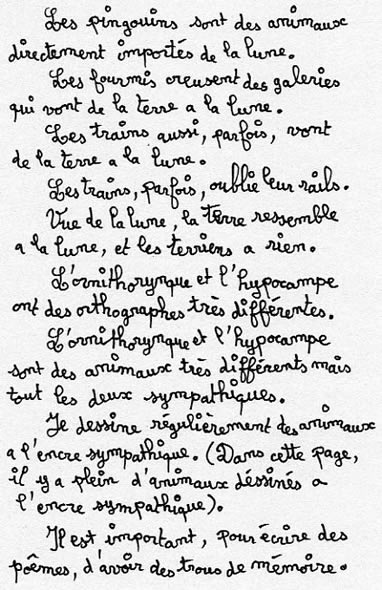 Les pingouins sont des animaux
directement importés de la lune.
Les fourmis creusent des galeries
qui vont de la terre a la lune.
Les trains aussi, parfois, vont
de la terre a la lune.
Les trains, parfois, oublie leur rails.
Vue de la lune, la terre ressemble
a la lune, et les terriens a rien.
L'ornithorynque et l'hypocampe
ont des orthographes très différentes.
L'ornithorynque et l'hypocampe
sont des animaux très différents mais
tout les deux sympathiques.
Je dessine régulièrement des animaux
a l'encre sympathique. (Dans cette page,
il y a plein d'animaux déssinés a
l'encre sympathique).
Il est important, pour écrire des
poêmes, d'avoir des trous de mémoire.